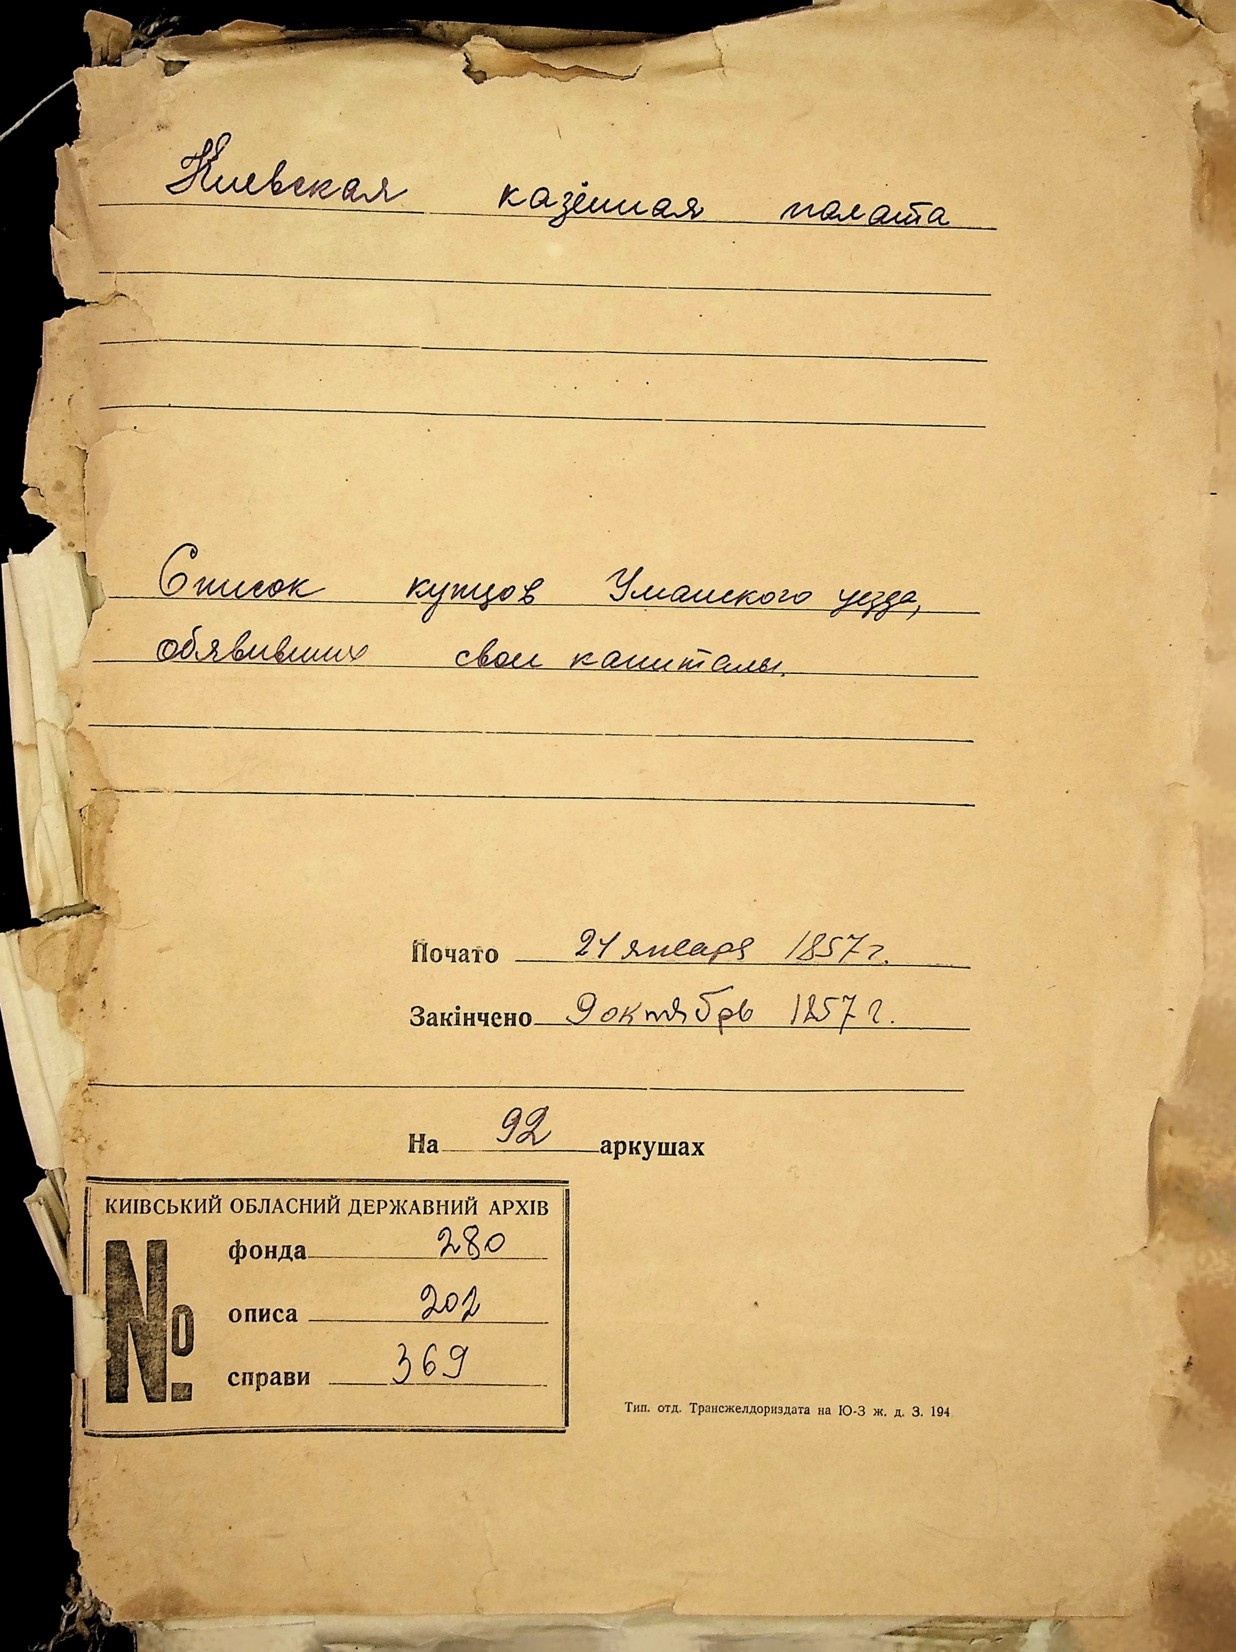 Киевская казённая палата
Список купцов Уманского уезда,
обявивших свои капиталы.
Почато 21 января 1857 г.
Закінчено 9 октябрь 1857 г.
На 92 аркушах
КИЇВСЬКИЙ ОБЛАСНИЙ ДЕРЖАВНИЙ АРХІВ
№
фонда 280
описа 202
справи 369
Тип. отд. Трансжелдориздата на Ю-З ж. д. З. 194